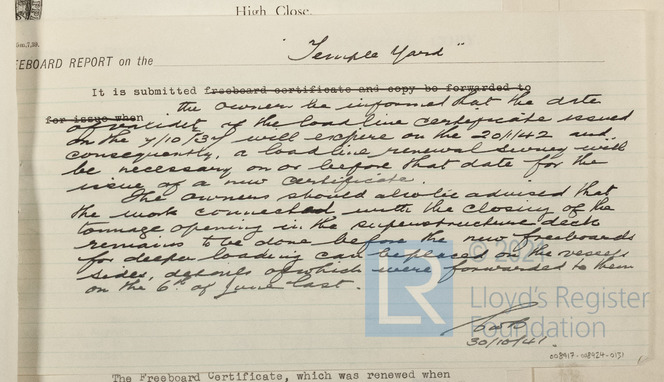 High Close.
EEBOARD REPORT on the "Temple Yard"
It is submitted freeboard certificate and copy be forwarded to
for issue when the owners be informed that the date
of validity of the load line certificate issued
on the 7/10/37 will expire on the 20/1/42 and,
consequently, a load line renewal survey will
be necessary on or before that date for the
issue of a new certificate.
The owners should also be advised that
the work connected with the closing of the
tonnage opening in the superstructure deck
remains to be done before the new freeboards
for deeper loading can be placed on the vessels
sides, details of which were forwarded to them
on the 6th of June last.
© 2021
LR
Lloyd's Register
Foundation
30/10/41
008917-008924-0131
The Freeboard Certificate, which was renewed when